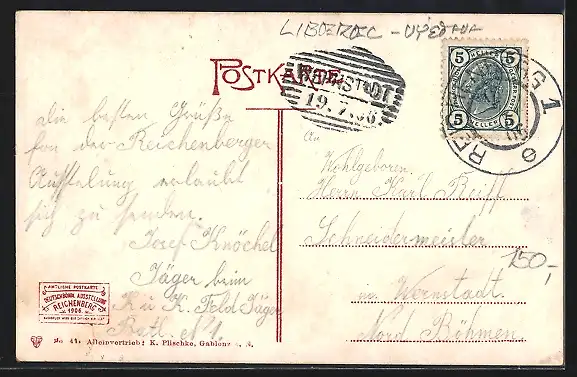 LIBEREC - VÝSTAVA
POSTKARTE
19. 7. 06.
5 HELLER 5
5 HELLER 5
die besten Grüße
fon der Reichenberger
Ausstelung erlaubt
sich zu senden.
Josef Knöchel
Jäger beim
K. u. K. Feld Jäger
Batl. № 1.
An
Wohlgeboren
Herrn Karl Reiff
Schneidermeister
in Wernstadt.
Nord Böhmen.
150,-
AMTLICHE POSTKARTE
DEUTSCHBÖHM. AUSSTELLUNG
REICHENBERG
1906.
No 41. Alleinvertrieb: K. Plischke, Gablonz a. N.